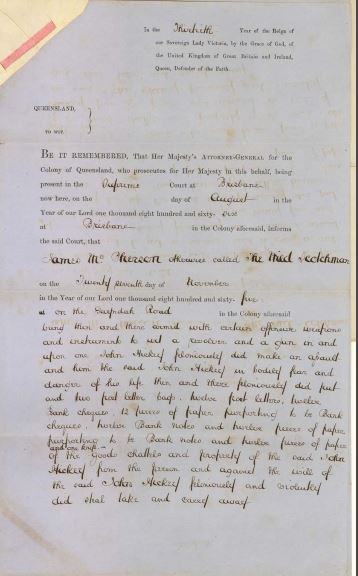 In the Thirtieth Year of the Reign of
our Sovereign Lady Victoria, by the Grace of God, of
the United Kingdom of Great Britain and Ireland,
Queen, Defender of the Faith.
QUEENSLAND,
TO WIT.
BE IT REMEMBERED, That Her Majesty's ATTORNEY-GENERAL for the
Colony of Queensland, who prosecutes for Her Majesty in this behalf, being
present in the Supreme Court at Brisbane
now here, on the day of August in the
Year of our Lord one thousand eight hundred and sixty- six
at Brisbane in the Colony aforesaid, informs
the said Court, that
James Mc Pherson otherwise called The Wild Scotchman
on the Twenty seventh day of November
in the Year of our Lord one thousand eight hundred and sixty- five
at on the Gayndah Road in the Colony aforesaid
being then and there armed with certain offensive weapons
and instruments to wit a revolver and a gun in and
upon one John Hickey feloniously did make an assault
and him the said John Hickey in bodily fear and
danger of his life then and there feloniously did put
and two post letter bags, twelve post letters, twelve
Bank cheques, 12 pieces of paper purporting to be Bank
cheques, twelve Bank notes and twelve pieces of paper
purporting to be Bank notes and twelve pieces of paper
and one knife
of the goods chattels and property of the said John
Hickey from the person and against the will of
the said John Hickey feloniously and violently
did steal take and carry away